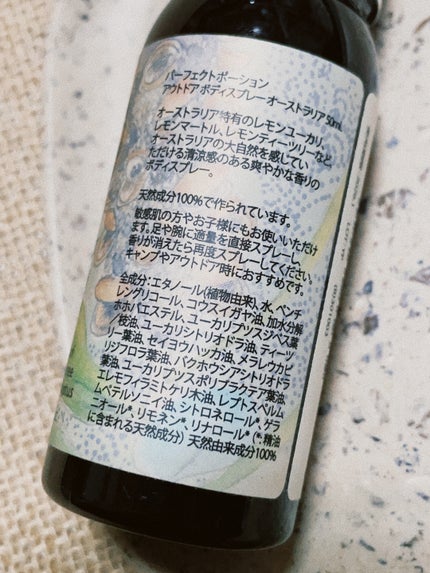 パーフェクトポーション
アウトドア ボディスプレー オーストラリア 50mL
オーストラリア特有のレモンユーカリ、
レモンマートル、レモンティーツリーなど
オーストラリアの大自然を感じてい
ただける清涼感のある爽やかな香りの
ボディスプレー。
天然成分100%で作られています。
敏感肌の方やお子様にもお使いいただけ
ます。足や腕に適量を直接スプレーし、
香りが消えたら再度スプレーしてください。
キャンプやアウトドア時におすすめです。
全成分:エタノール(植物由来)、水、ペンチ
レングリコール、コウスイガヤ油、加水分解
ホホバエステル、ユーカリプツスジベス葉
/枝油、ユーカリシトリオドラ油、ティーツ
リー葉油、セイヨウハッカ油、メラレウカビ
リジフロラ葉油、バクホウシアシトリオドラ
葉油、ユーカリプツスポリブラクテア葉油、
エレモフィラミトケリ木油、レプトスペルム
ムペテルソニイ油、シトロネロール*、ゲラ
ニオール*、リモネン*、リナロール* (*:精油
に含まれる天然成分) 天然由来成分100%